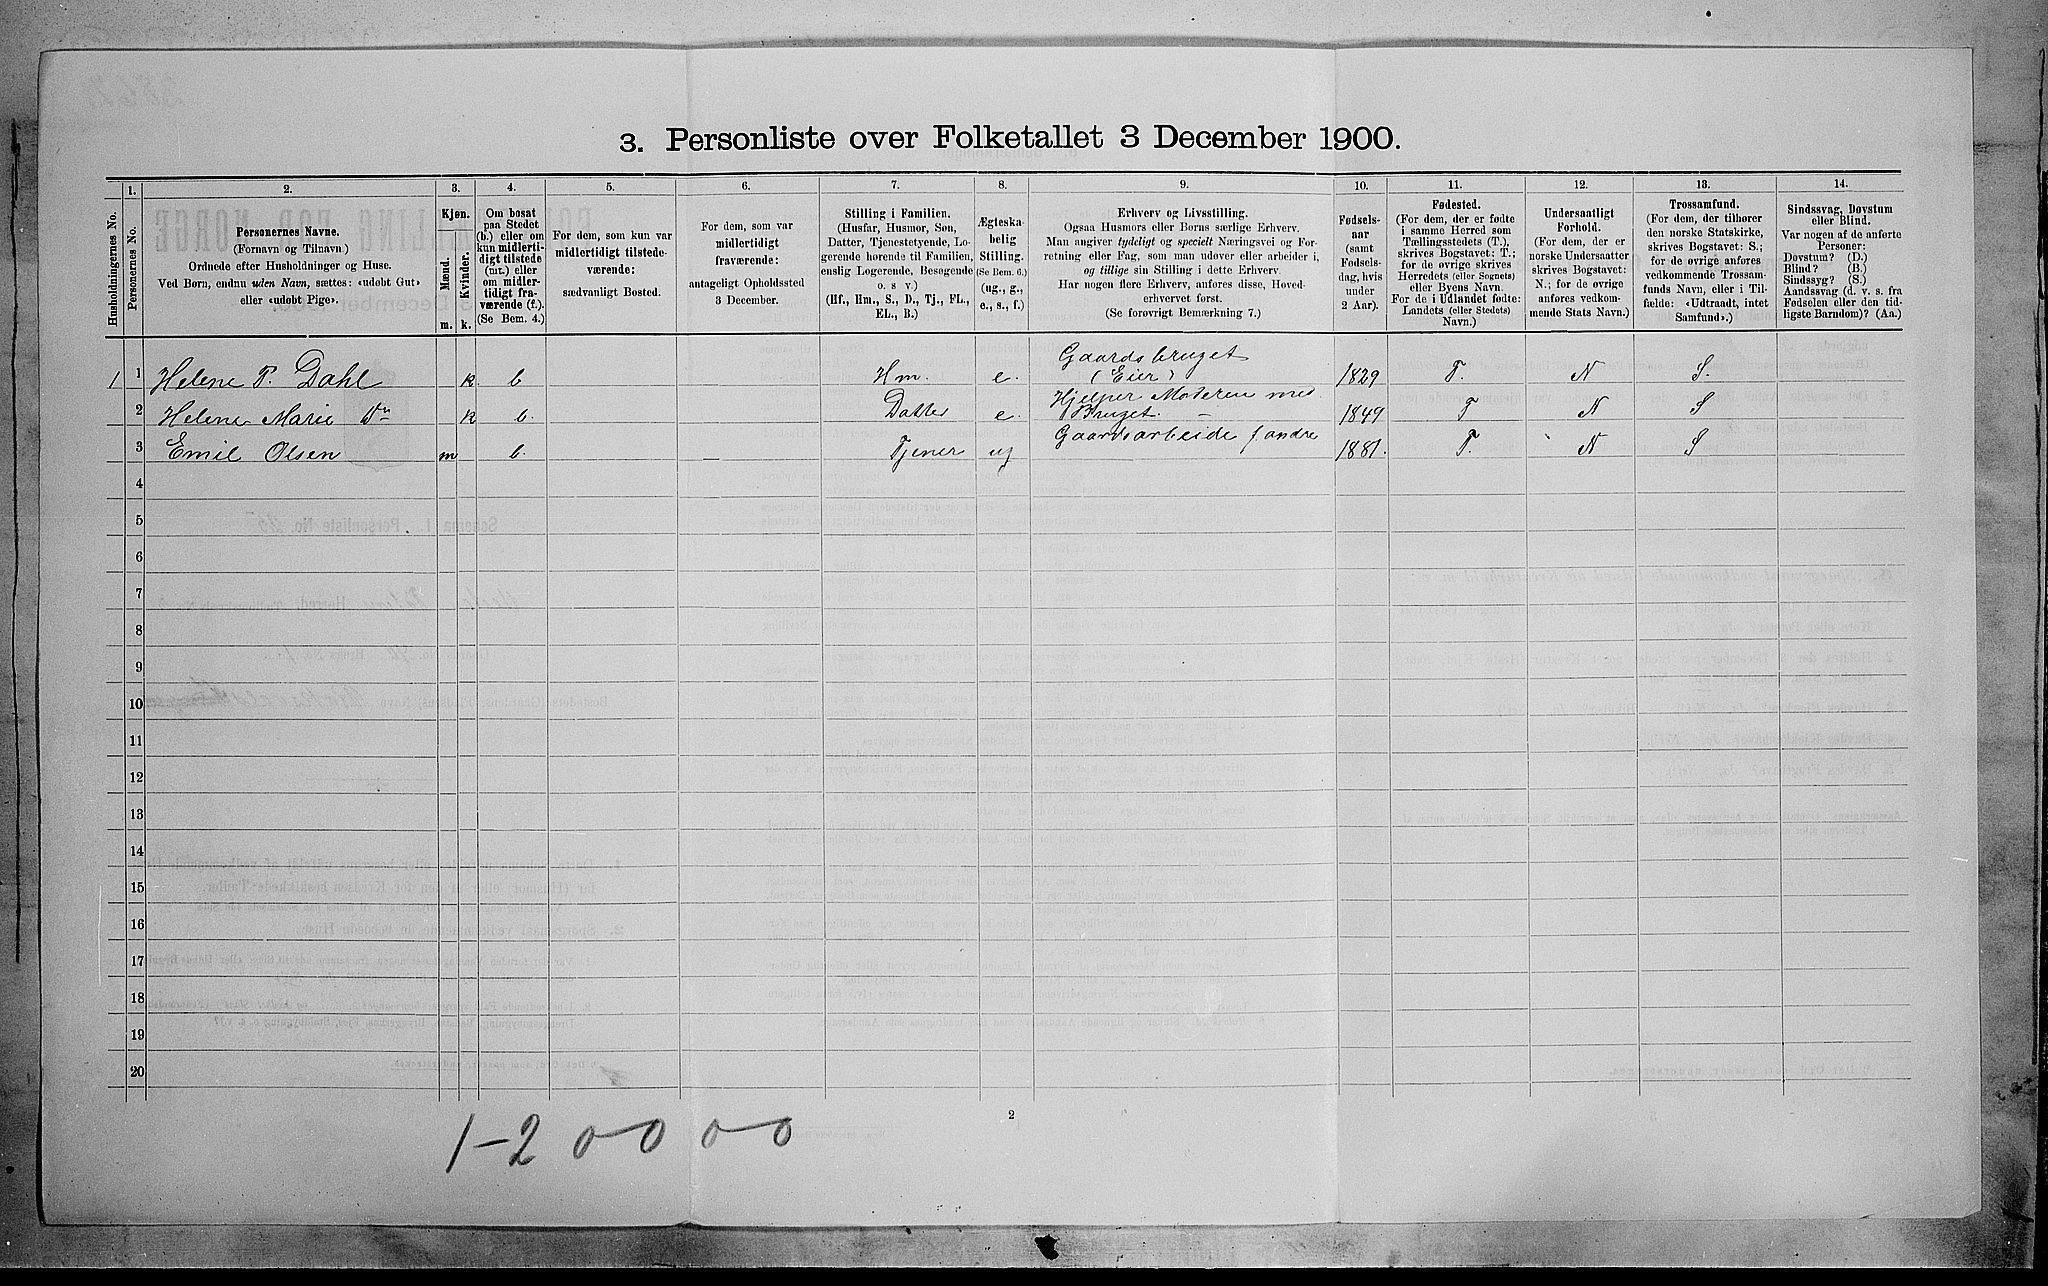 3. Personliste over Folketallet 3 December 1900.
1. 2. 3. 4. 5. 6. 7. 8. 9. 10. 11. 12. 13. 14.
Husholdningernes No.
Personernes No.
Personernes Navne.
(Fornavn og Tilnavn.)
Ordnede efter Husholdninger og Huse.
Ved Børn, endnu uden Navn, sættes: «udøbt Gut»
eller «udøbt Pige».
Kjøn.
Mænd.
Kvinder.
m. k.
Om bosat
paa Stedet
(b.) eller om
kun midlerti-
digt tilstede
(mt.) eller
om midler-
tidigt fra-
værende (f.).
(Se Bem. 4.)
For dem, som kun var
midlertidigt tilstede-
værende:
sædvanligt Bosted.
For dem, som var
midlertidigt
fraværende:
antageligt Opholdssted
3 December.
Stilling i Familien.
(Husfar, Husmor, Søn,
Datter, Tjenestetyende, Lo-
gerende hørende til Familien,
enslig Logerende, Besøgende
o. s v.)
(Hf., Hm., S., D., Tj., FL.,
EL., B.)
Ægteska-
belig
Stilling.
(Se Bem. 6.)
(ug., g.,
e., s., f.)
Erhverv og Livsstilling.
Ogsaa Husmors eller Børns særlige Erhverv.
Man angiver tydeligt og specielt Næringsvei og For-
retning eller Fag, som man udøver eller arbeider i,
og tillige sin Stilling i dette Erhverv.
Har nogen flere Erhverv, anføres disse, Hoved-
erhvervet først.
(Se forøvrigt Bemærkning 7.)
Fødsels-
aar
(samt
Fødsels-
dag, hvis
under
2 Aar).
Fødested.
(For dem, der er fødte
i samme Herred som
Tællingsstedets (T.),
skrives Bogstavet: T.;
for de øvrige skrives
Herredets (eller Sognets)
eller Byens Navn.
For de i Udlandet fødte:
Landets (eller Stedets)
Navn.)
Undersaatligt
Forhold.
(For dem, der er
norske Undersaatter
skrives Bogstavet:
N.; for de øvrige
anføres vedkom-
mende Stats Navn.)
Trossamfund.
(For dem, der tilhører
den norske Statskirke,
skrives Bogstavet: S.;
for de øvrige anføres
vedkommende Trossam-
funds Navn, eller i Til-
fælde: «Udtraadt, intet
Samfund».)
Sindssvag, Døvstum
eller Blind.
Var nogen af de anførte
Personer:
Døvstum? (D.)
Blind? (B.)
Sindssyg? (S.)
Aandssvag (d. v. s. fra
Fødselen eller den tid-
ligste Barndom)? (Aa.)
1 1 Helene P. Dahl k. b Hm. e. Gaardsbruget (Eier) 1829 T. N S.
2 Helene Marie Do k b. Datter e. Hjelper Moderen med Bruget. 1849 T N S
3 Emil Olsen m b. — Tjener ug Gaardsarbeide f andre 1881. T. N S
4
5
6
7
8
9
10
11
12
13
14
15
16
17
18
19
20
2
1-2 0 0 0 0